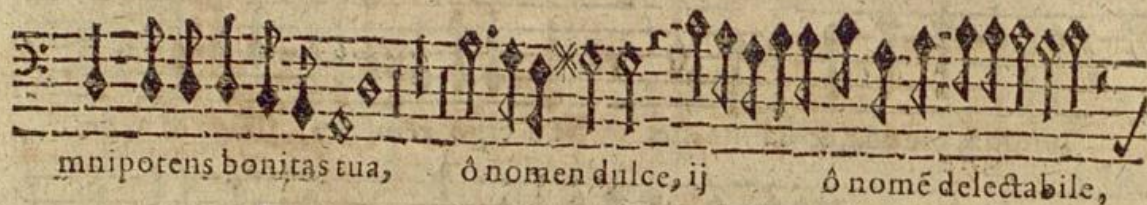 mnipotens bonitas tua, ô nomen dulce, ij ô nomē delectabile,